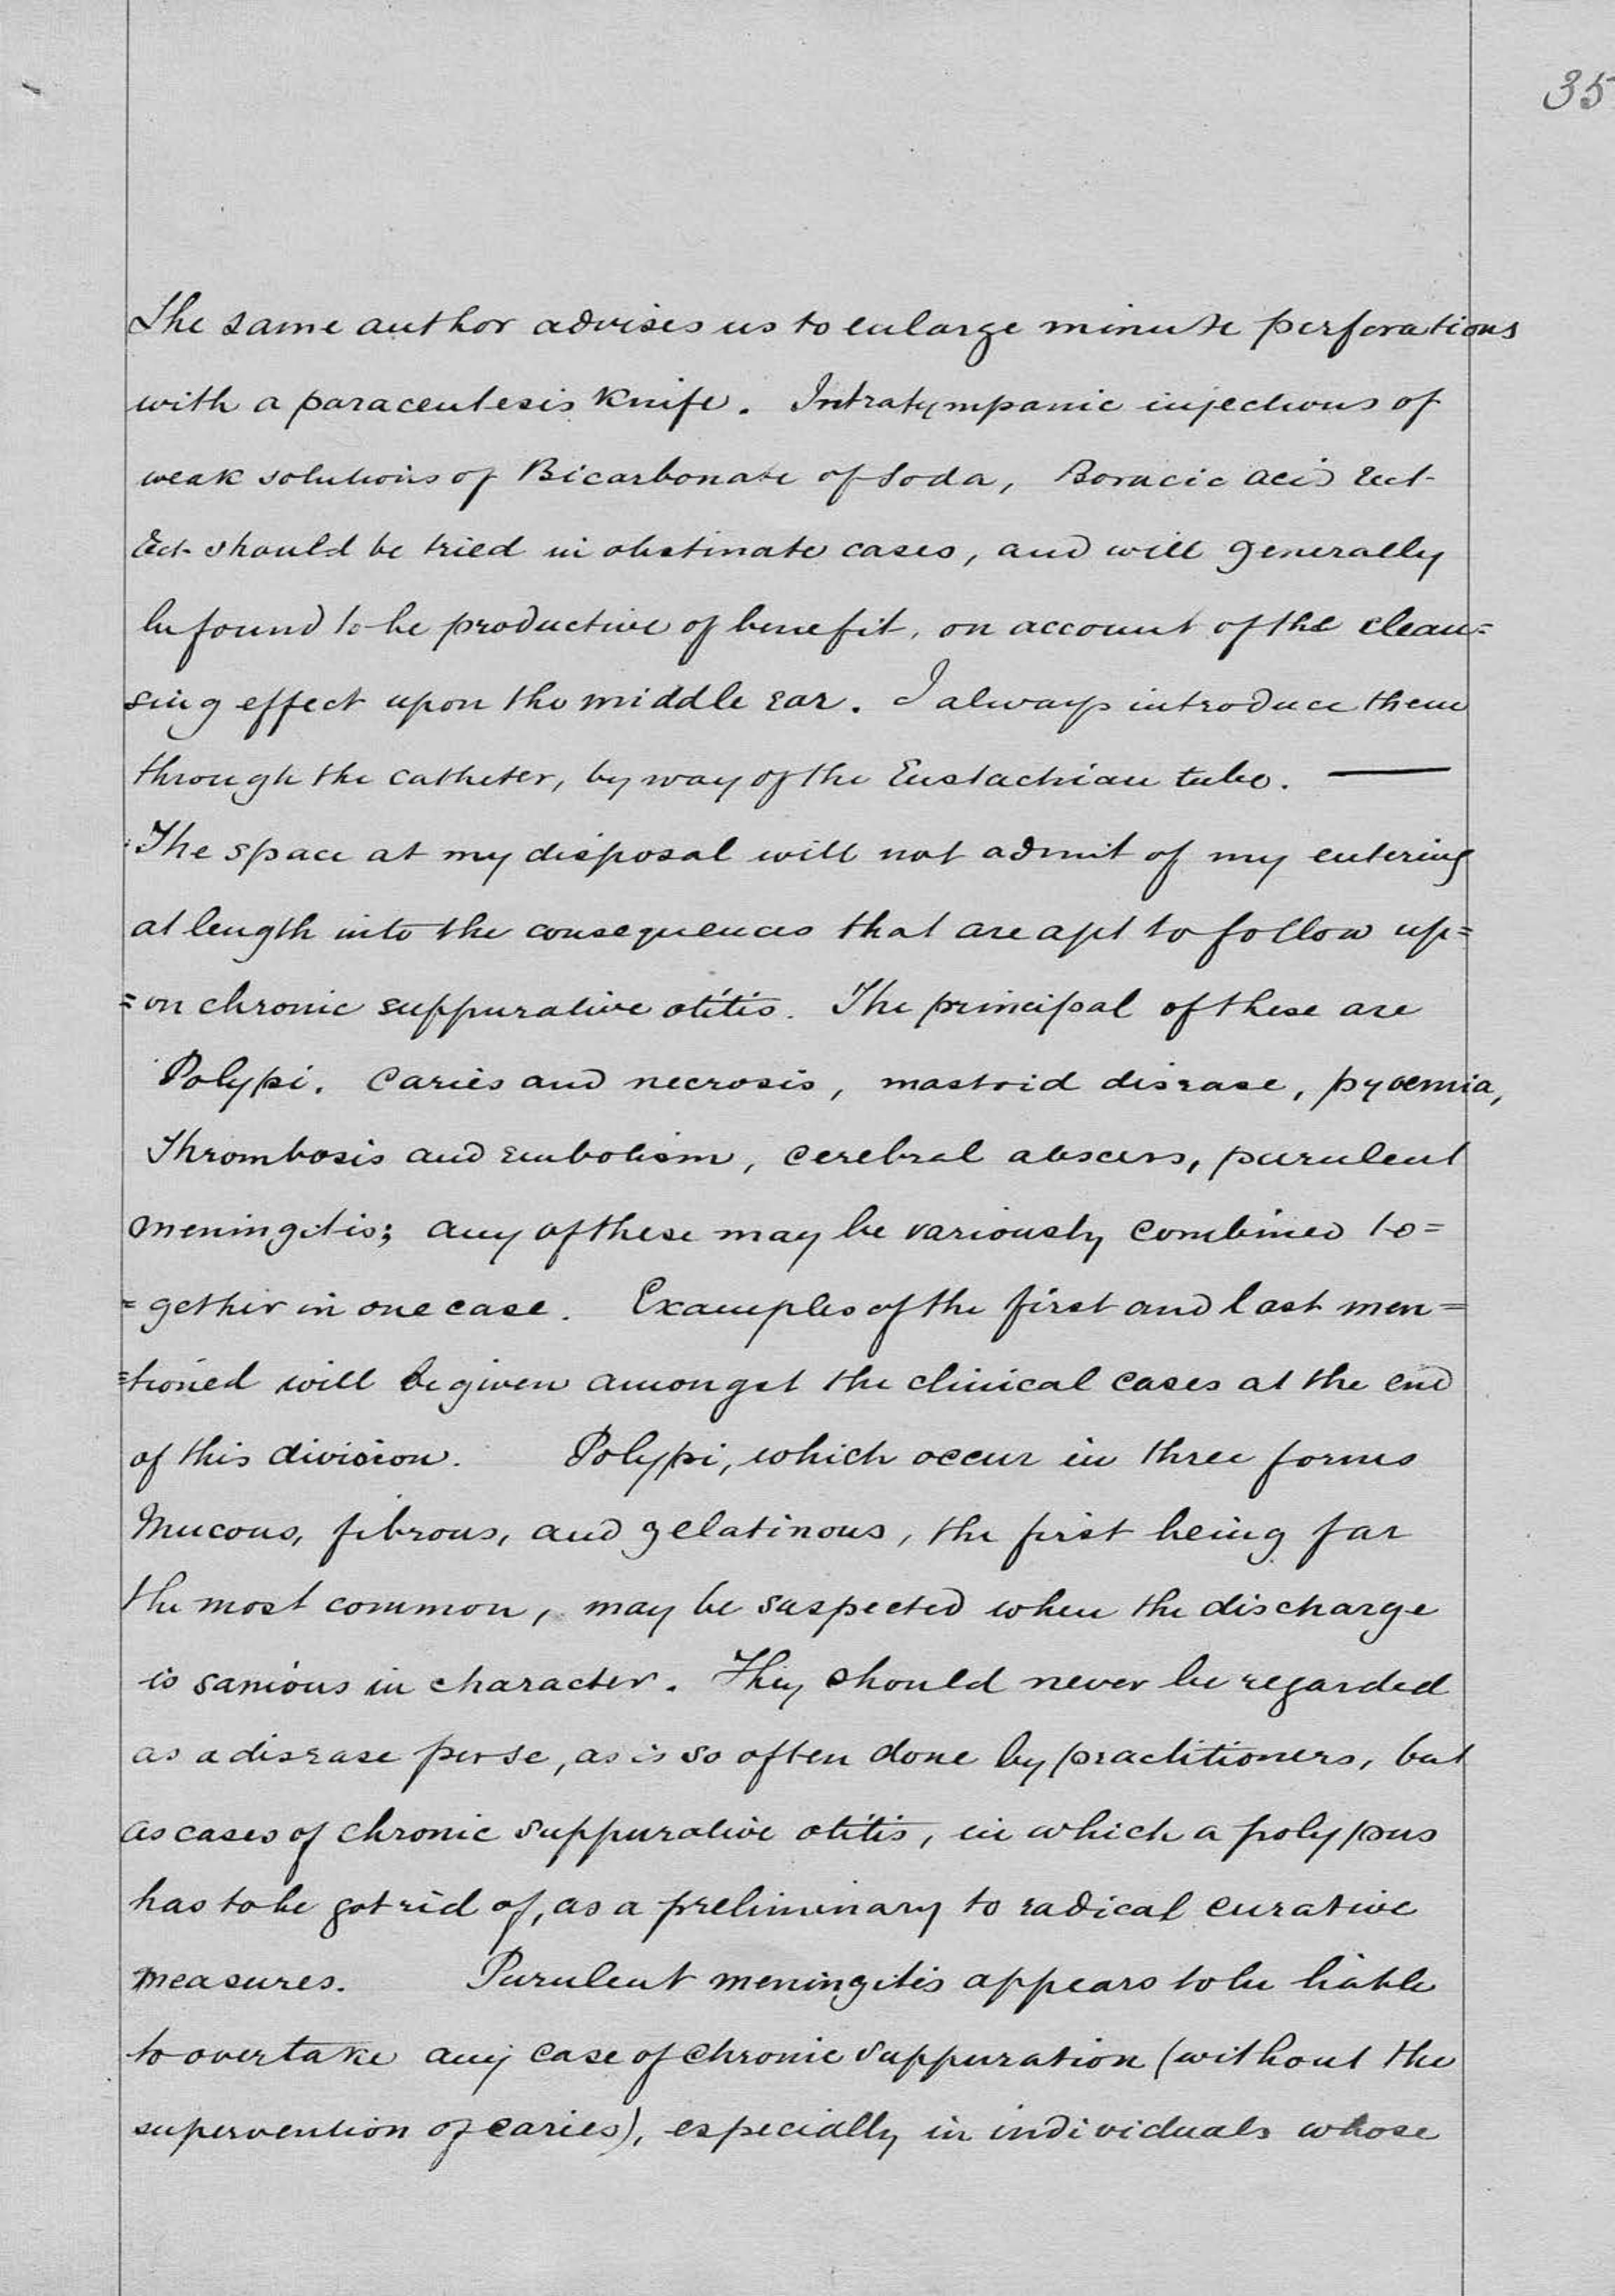 35
The same author advises us to enlarge minute perforations
with a paracentesis Knife. Intratympanic injections of
weak solutions of Bicarbonate of Soda, Boracic acid Ect-
Ect- should be tried in obstinate cases, and will generally
be found to be productive of benefit, on account of the clean=
sing effect upon the middle ear. I always introduce them
through the catheter, by way of the Eustachian tube. —
The space at my disposal will not admit of my entering
at length into the consequences that are apt to follow up=
=on chronic suppurative otitis. The principal of these are
Polypi. Caries and necrosis, mastoid disease, pyoemia,
Thrombosis and embolism, cerebral abscess, purulent
meningitis; any of these may be variously combined to=
=gether in one case. Examples of the first and last men=
=tioned will be given amongst the clinical cases at the end
of this division. Polypi, which occur in three forms
Mucous, fibrous, and gelatinous, the first being far
the most common, may be suspected when the discharge
is sanious in character. They should never be regarded
as a disease per se, as is so often done by practitioners, but
as cases of chronic suppurative otitis, in which a polypus
has to be got rid of, as a preliminary to radical curative
measures. Purulent meningitis appears to be liable
to overtake any case of chronic suppuration (without the
supervention of caries), especially in individuals whose